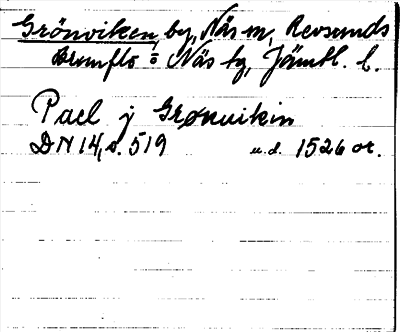 Grönviken, by, Näs m, Revsunds
Brunflo o Näs tg, Jämtl. l.
Pael j Grønuikin
DN 14, s. 519 u.d. 1526 or.